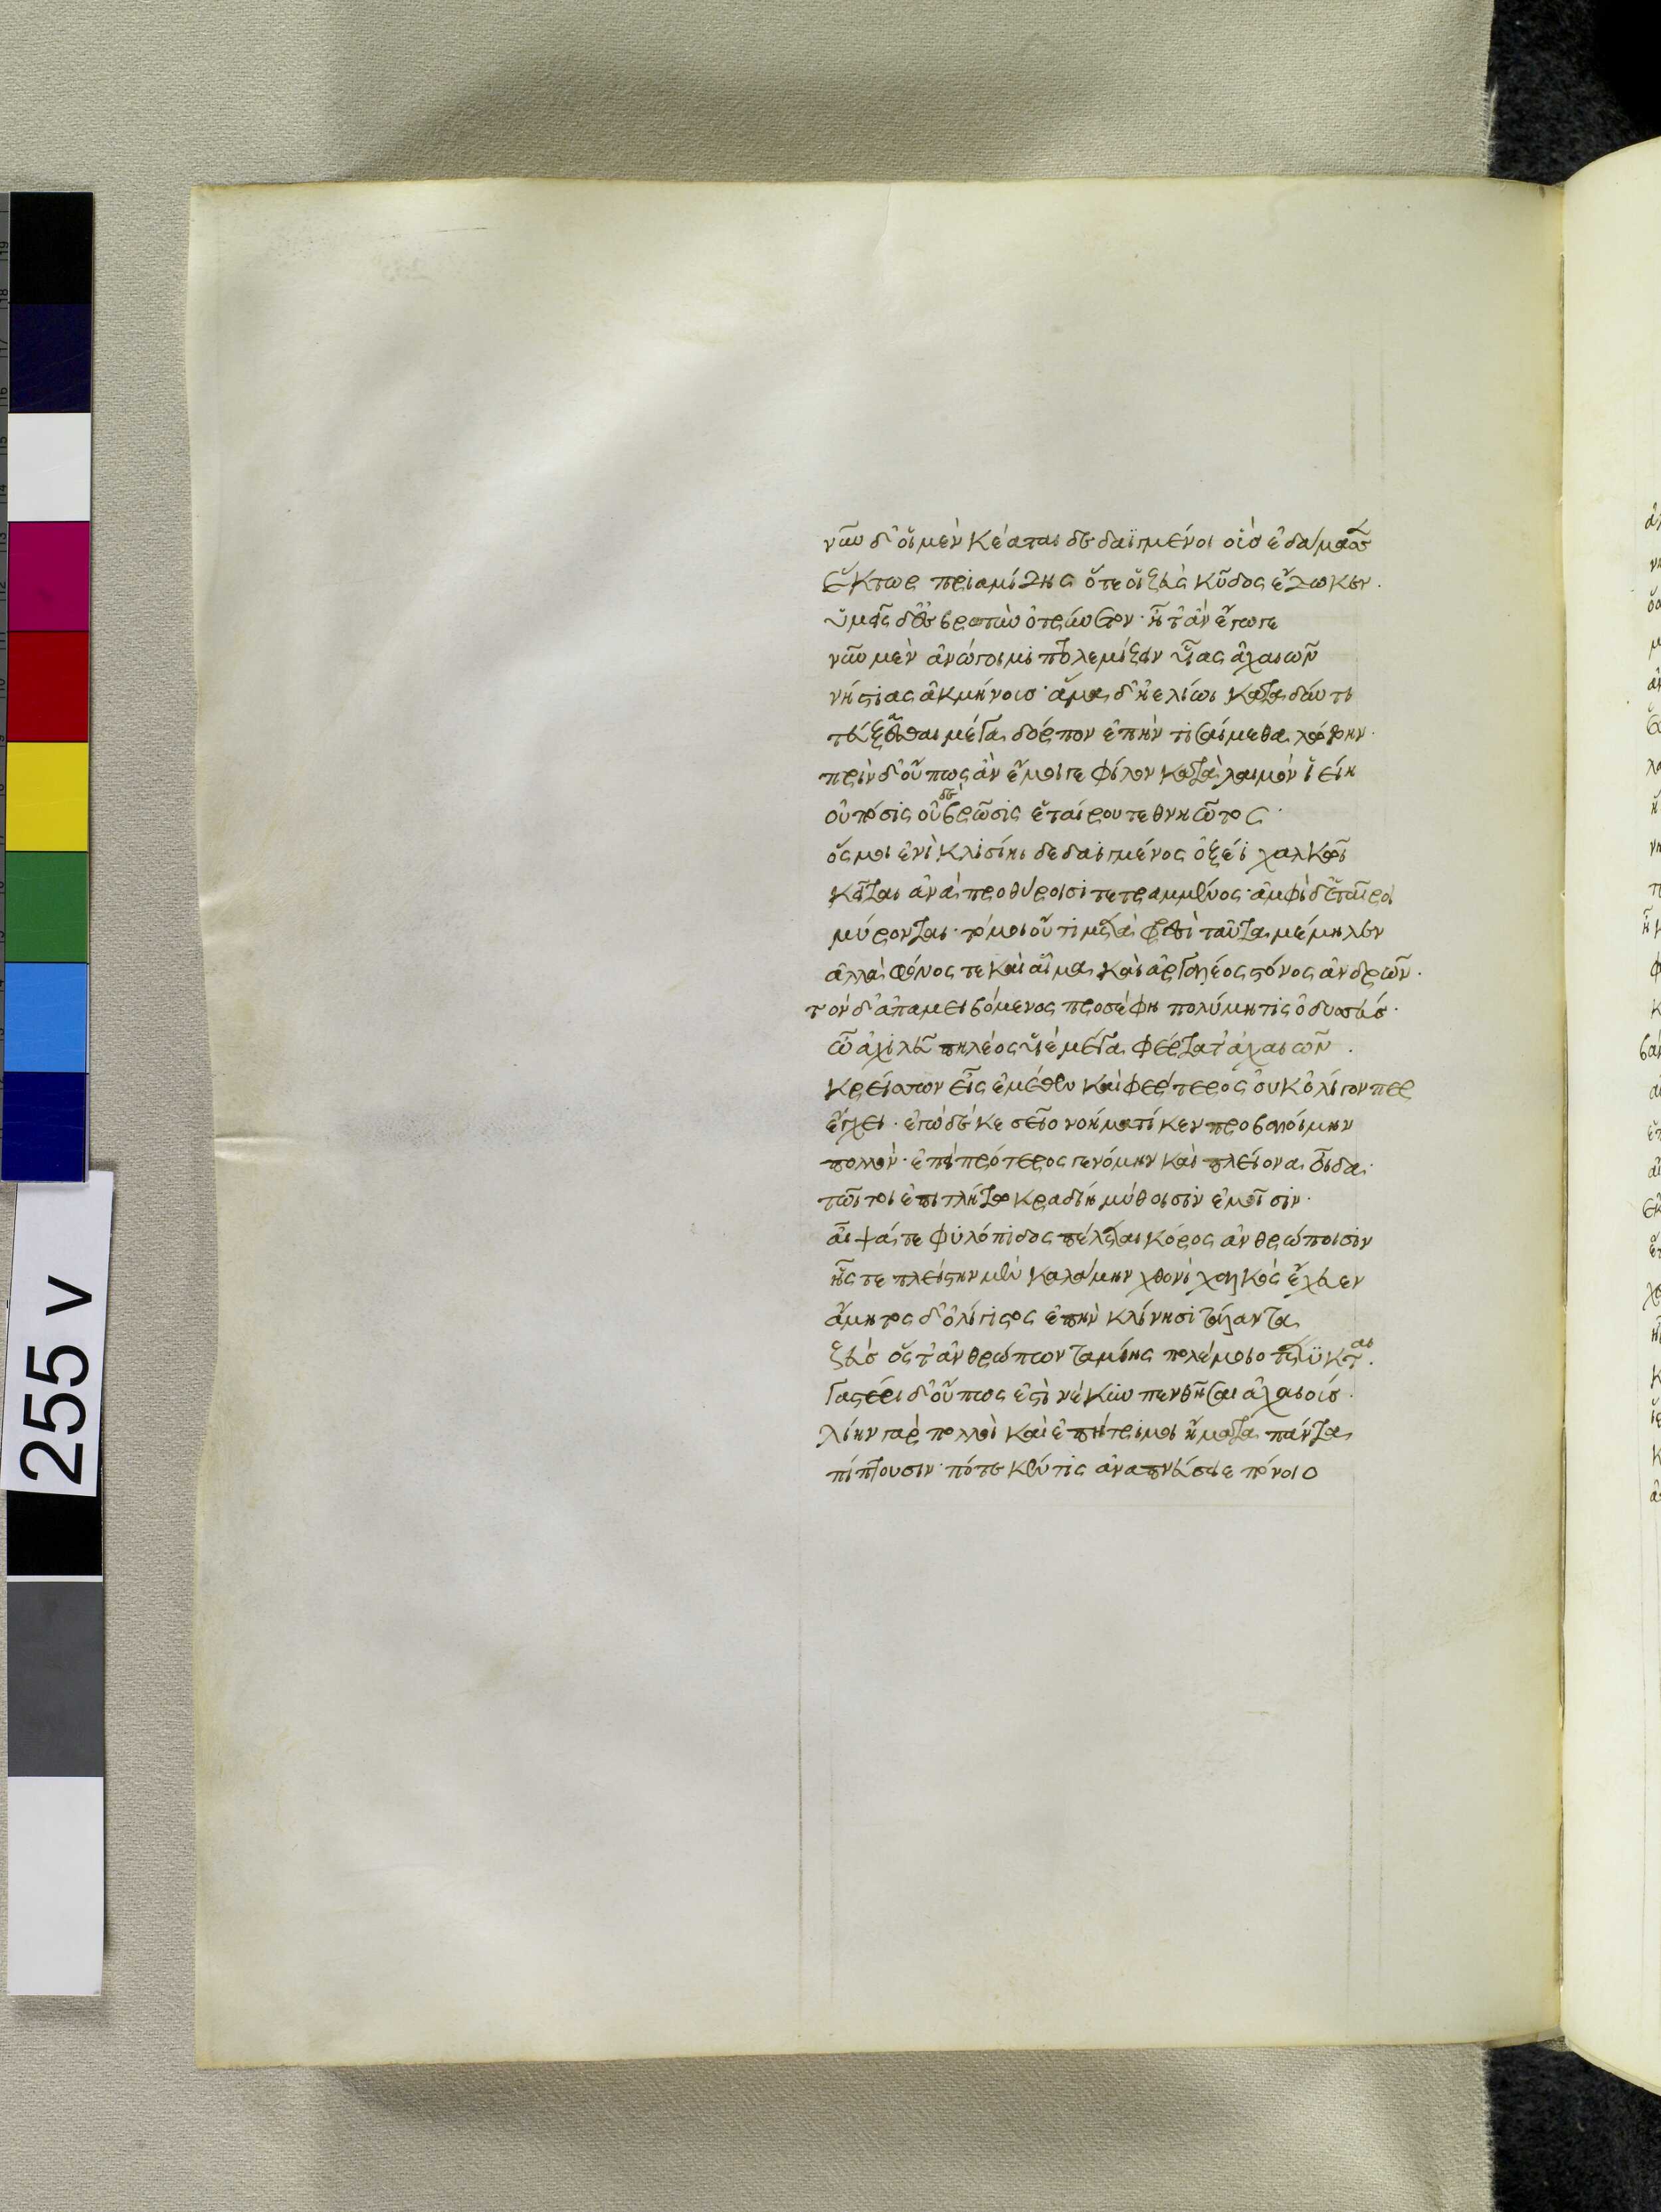 νῦν δ' οἱ μὲν κέαται δεδαϊγμένοι οὓς ἐδάμασσεν
Ἕκτωρ πριαμίδης ὅτε οἱ ζεὺς κῦδος ἔδωκεν.
ὑμεῖς δ' ἐς βρωτὺν ὀτρύνετον· ἦ τ' ἂν ἔγωγε
νῦν μὲν ἀνώγοιμι πτολεμίζειν υἷας ἀχαιῶν
νήστιας ἀκμήνους· ἅμα δ' ἠελίωι καταδύντι
τεύξεσθαι μέγα δόρπον ἐπὴν τισαίμεθα λώβην.
πρὶν δ' οὔπως ἂν ἔμοιγε φίλον κατὰ λαιμὸν ἰείη
οὐ πόσις οὐδὲ βρῶσις ἑταίρου τεθνηῶτος·
ὅς μοι ἐνὶ κλισίηι δεδαιγμένος ὀξέϊ χαλκῶι
κεῖται ἀνὰ προθύροισι τετραμμένος· ἀμφὶ δ' ἑταῖροι
μύρονται· τό μοι οὔτι μετὰ φρεσὶ ταῦτα μέμηλεν
ἀλλὰ φόνος τε καὶ αἷμα καὶ ἀργαλέος στόνος ἀνδρῶν.
τὸν δ' ἀπαμειβόμενος προσέφη πολύμητις ὀδυσσεύς·
ὦ ἀχιλεῦ πηλέος υἱὲ μέγα φέρτατ' ἀχαιῶν.
κρείσσων εἰς ἐμέθεν καὶ φέρτερος οὐκ ὀλίγον περ
ἔγχει· ἐγὼ δέ κε σεῖο νοήματί κεν προβαλοίμην
πολλὸν· ἐπεὶ πρότερος γενόμην καὶ πλείονα οἶδα·
τῶι τοι ἐπιτλήτω κραδίη μύθοισιν ἐμοῖσιν·
αἶψά τε φυλόπιδος πέλεται κόρος ἀνθρώποισιν
ἧς τε πλείστην μὲν καλάμην χθονὶ χαλκὸς ἔχευεν
ἄμητος δ' ὀλίγιστος ἐπὴν κλίνησι τάλαντα
ζεύς ὅς τ' ἀνθρώπων ταμίης πολέμοιο τέτυκται.
γαστέρι δ' οὔπως ἐστὶ νέκυν πενθῆσαι ἀχαιούς·
λίην γὰρ πολλοὶ καὶ ἐπήτριμοι ἤματα πάντα
πίπτουσιν· πότε κέν τις ἀναπνεύσειε πόνοιο
255 v